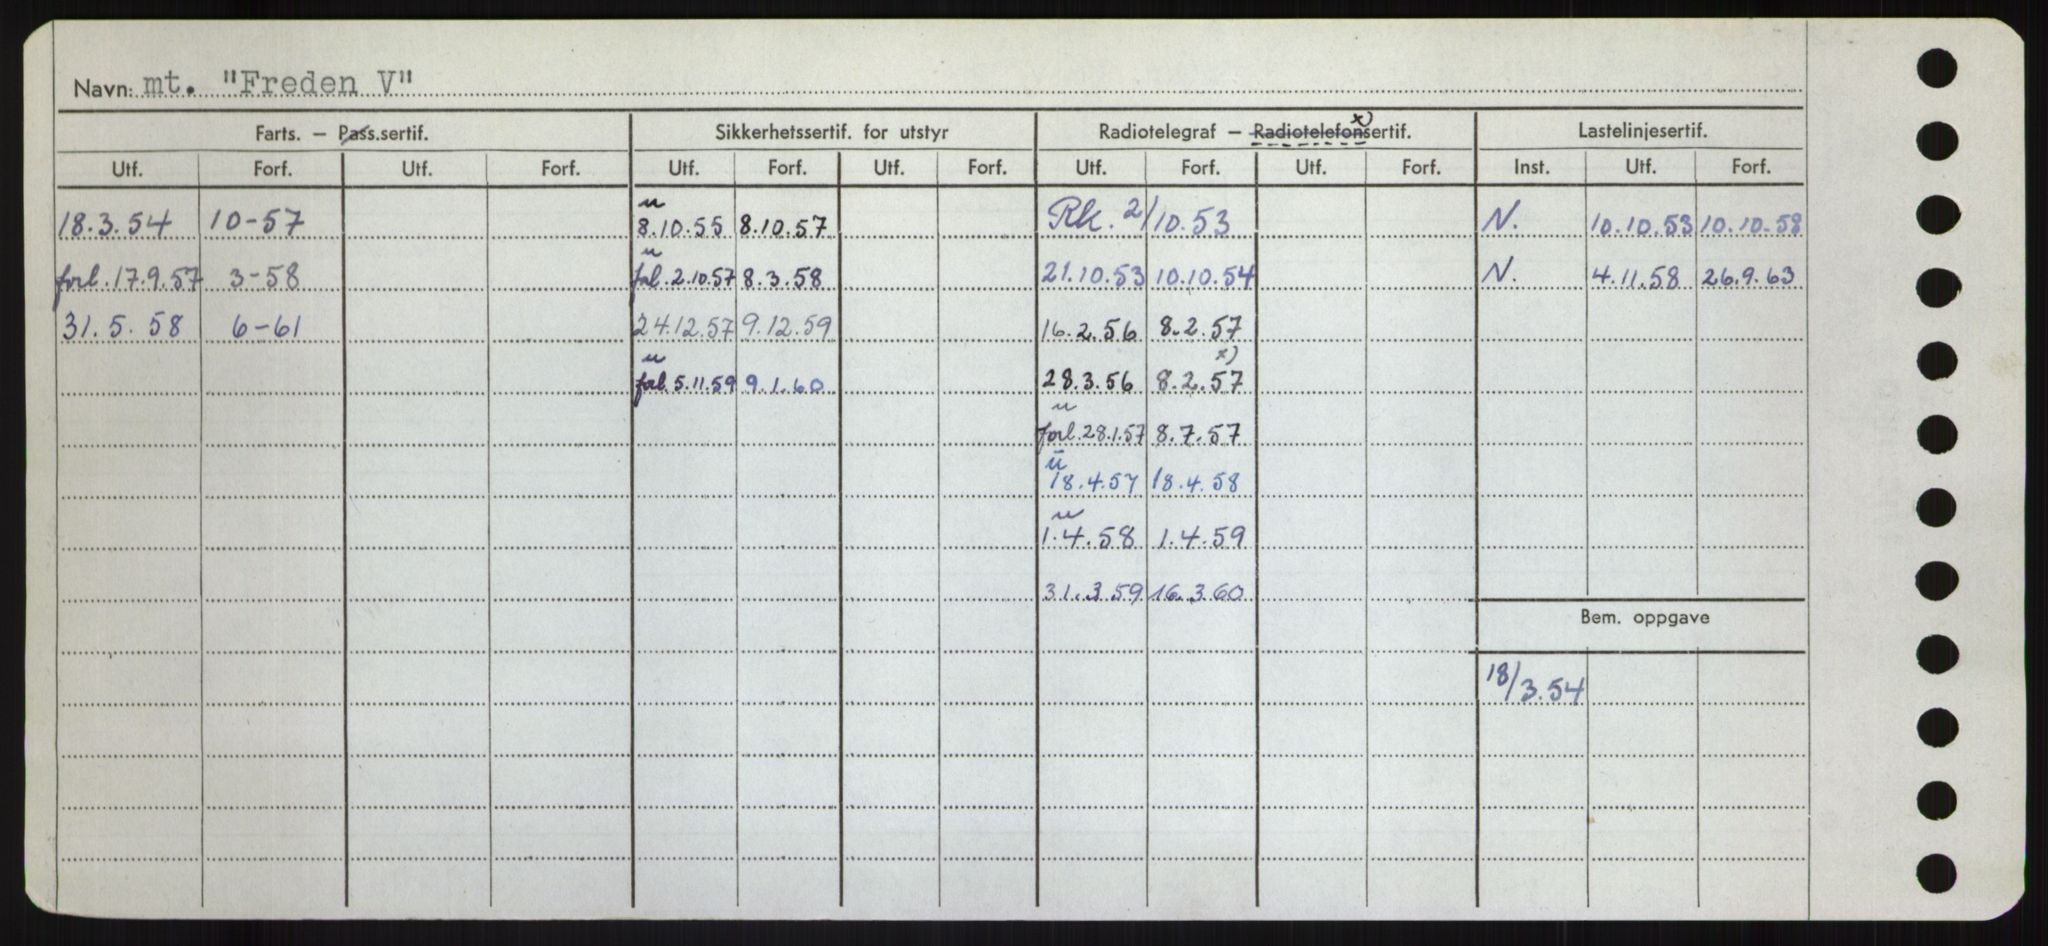 Navn: mt. "Freden V"
Farts. — Pass.sertif. Sikkerhetssertif. for utstyr Radiotelegraf — Radiotelefonsertif. x) Lastelinjesertif.
Utf. Forf. Utf. Forf. Utf. Forf. Utf. Forf. Utf. Forf. Utf. Forf. Inst. Utf. Forf.
18.3.54 10-57 u 8.10.55 8.10.57 Rk. 2/10.53 N. 10.10.53 10.10.58
forl. 17.9.57 3-58 u forl. 2.10.57 8.3.58 21.10.53 10.10.54 N. 4.11.58 26.9.63
31.5.58 6-61 24.12.57 9.12.59 16.2.56 8.2.57
u forl. 5.11.59 9.1.60 28.3.56 8.2.57 x)
u forl. 28.1.57 8.7.57
u 18.4.57 18.4.58
u 1.4.58 1.4.59
31.3.59 16.3.60
Bem. oppgave
18/3.54